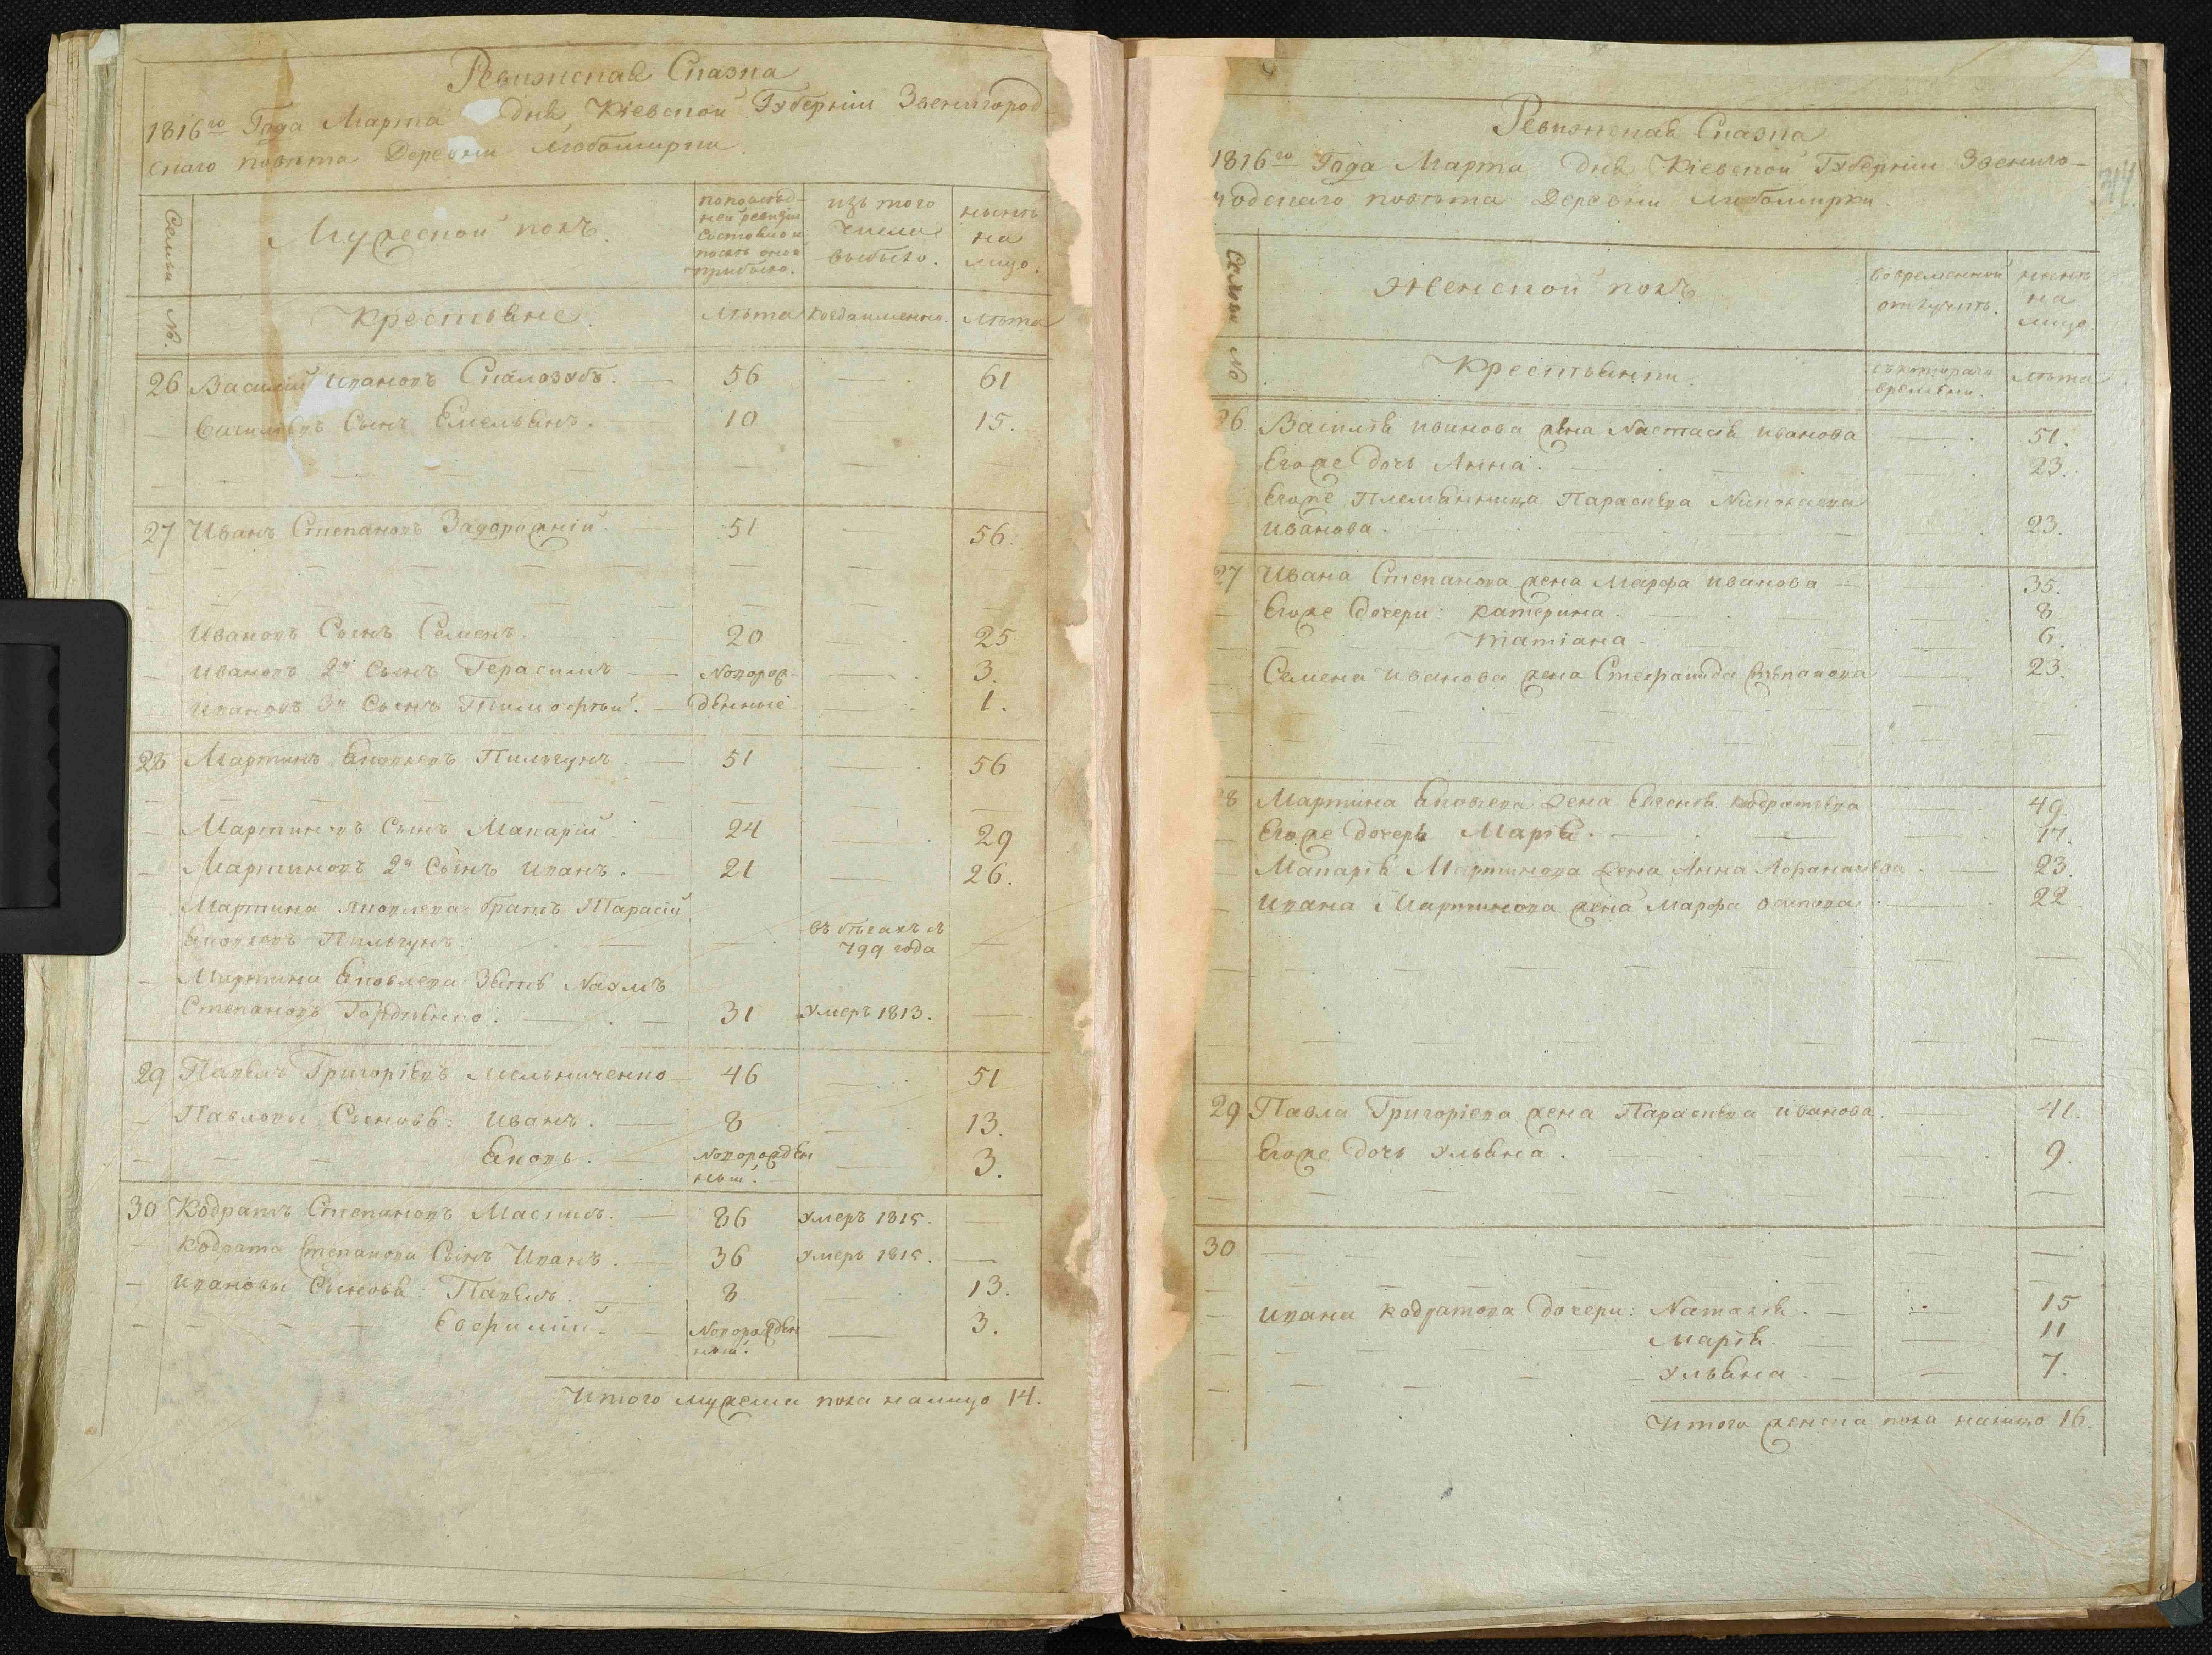 Ревизская Сказка
1816го Года Марта Дня Кіевской Губерніи Звенигород
скаго повѣта Деревни Любомирки.
Семьи
Мужеской полъ.
по послѣд-
ней ревизіи
состояло и
послѣ оной
прибыло.
изъ того
числа
выбыло.
нынѣ
на
лицо.
№.
Крестьяне.
Лѣта
когда именно.
Лѣта
26 Василій Ивановъ Скалозубъ. 56 — 61
Васильевъ Сынъ Емельянъ. 10 — 15.
27 Иванъ Степановъ Задорожній. 51 — 56.
Ивановъ Сынъ Семенъ. 20 — 25
Ивановъ 2й Сынъ Герасимъ Новорож- — 3.
Ивановъ 3й Сынъ Тимофѣй. денные — 1.
28 Мартинъ Яковлевъ Пильгунъ 51 — 56
Мартиновъ Сынъ Макарій 24 — 29
Мартиновъ 2й Сынъ Иванъ. 21 — 26.
Мартина Яковлева братъ Тарасій
Яковлевъ Пильгунъ. — въ бѣгахъ съ
799 года —
Мартина Яковлева Зять Наумъ
Степановъ Гордѣенко. 31 Умеръ 1813. —
29 Павелъ Григоріевъ Мельниченко 46 — 51
Павловы Сыновья: Иванъ. 8 — 13.
Яковъ. Новорожден
ный. — 3.
30 Кодратъ Степановъ Маслинъ. 86 Умеръ 1815. —
Кодрата Степанова Сынъ Иванъ. 36 Умеръ 1815. —
Ивановы Сыновья: Павелъ. 8 — 13.
Евфимій. Новорожден
ный. — 3.
Итого мужеска пола налицо 14.
Ревизская Сказка
1816го Года Марта Дня Кіевской Губерніи Звениго-
родскаго повѣта Деревни Любомирки.
Семьи
Женской полъ
во временной
отлучкѣ.
нынѣ
на
лицо
№
Крестьянки.
съ котораго
времени.
Лѣта
26 Василія Иванова жена Настасія Иванова — 51.
Егоже дочь Анна. 23.
Егоже Племянница Параскева Николаева
Иванова. 23.
27 Ивана Степанова жена Марфа Иванова — 35.
Егоже дочери: Катерина. 8
Татіана 6.
Семена Иванова жена Стефанида Степанова 23.
28 Мартина Яковлева жена Евгенія Кодратьева 49
Егоже дочерь Марія. 17.
Макарія Мартинова жена Анна Афанасьева 23.
Ивана Мартинова жена Марфа Осипова 22
29 Павла Григоріева жена Параскева Иванова. 41.
Егоже дочь Ульяна. 9.
30
Ивана Кодратова дочери: Наталія. 15
Марія. 11
Ульяна. 7.
Итого женска пола налицо 16.